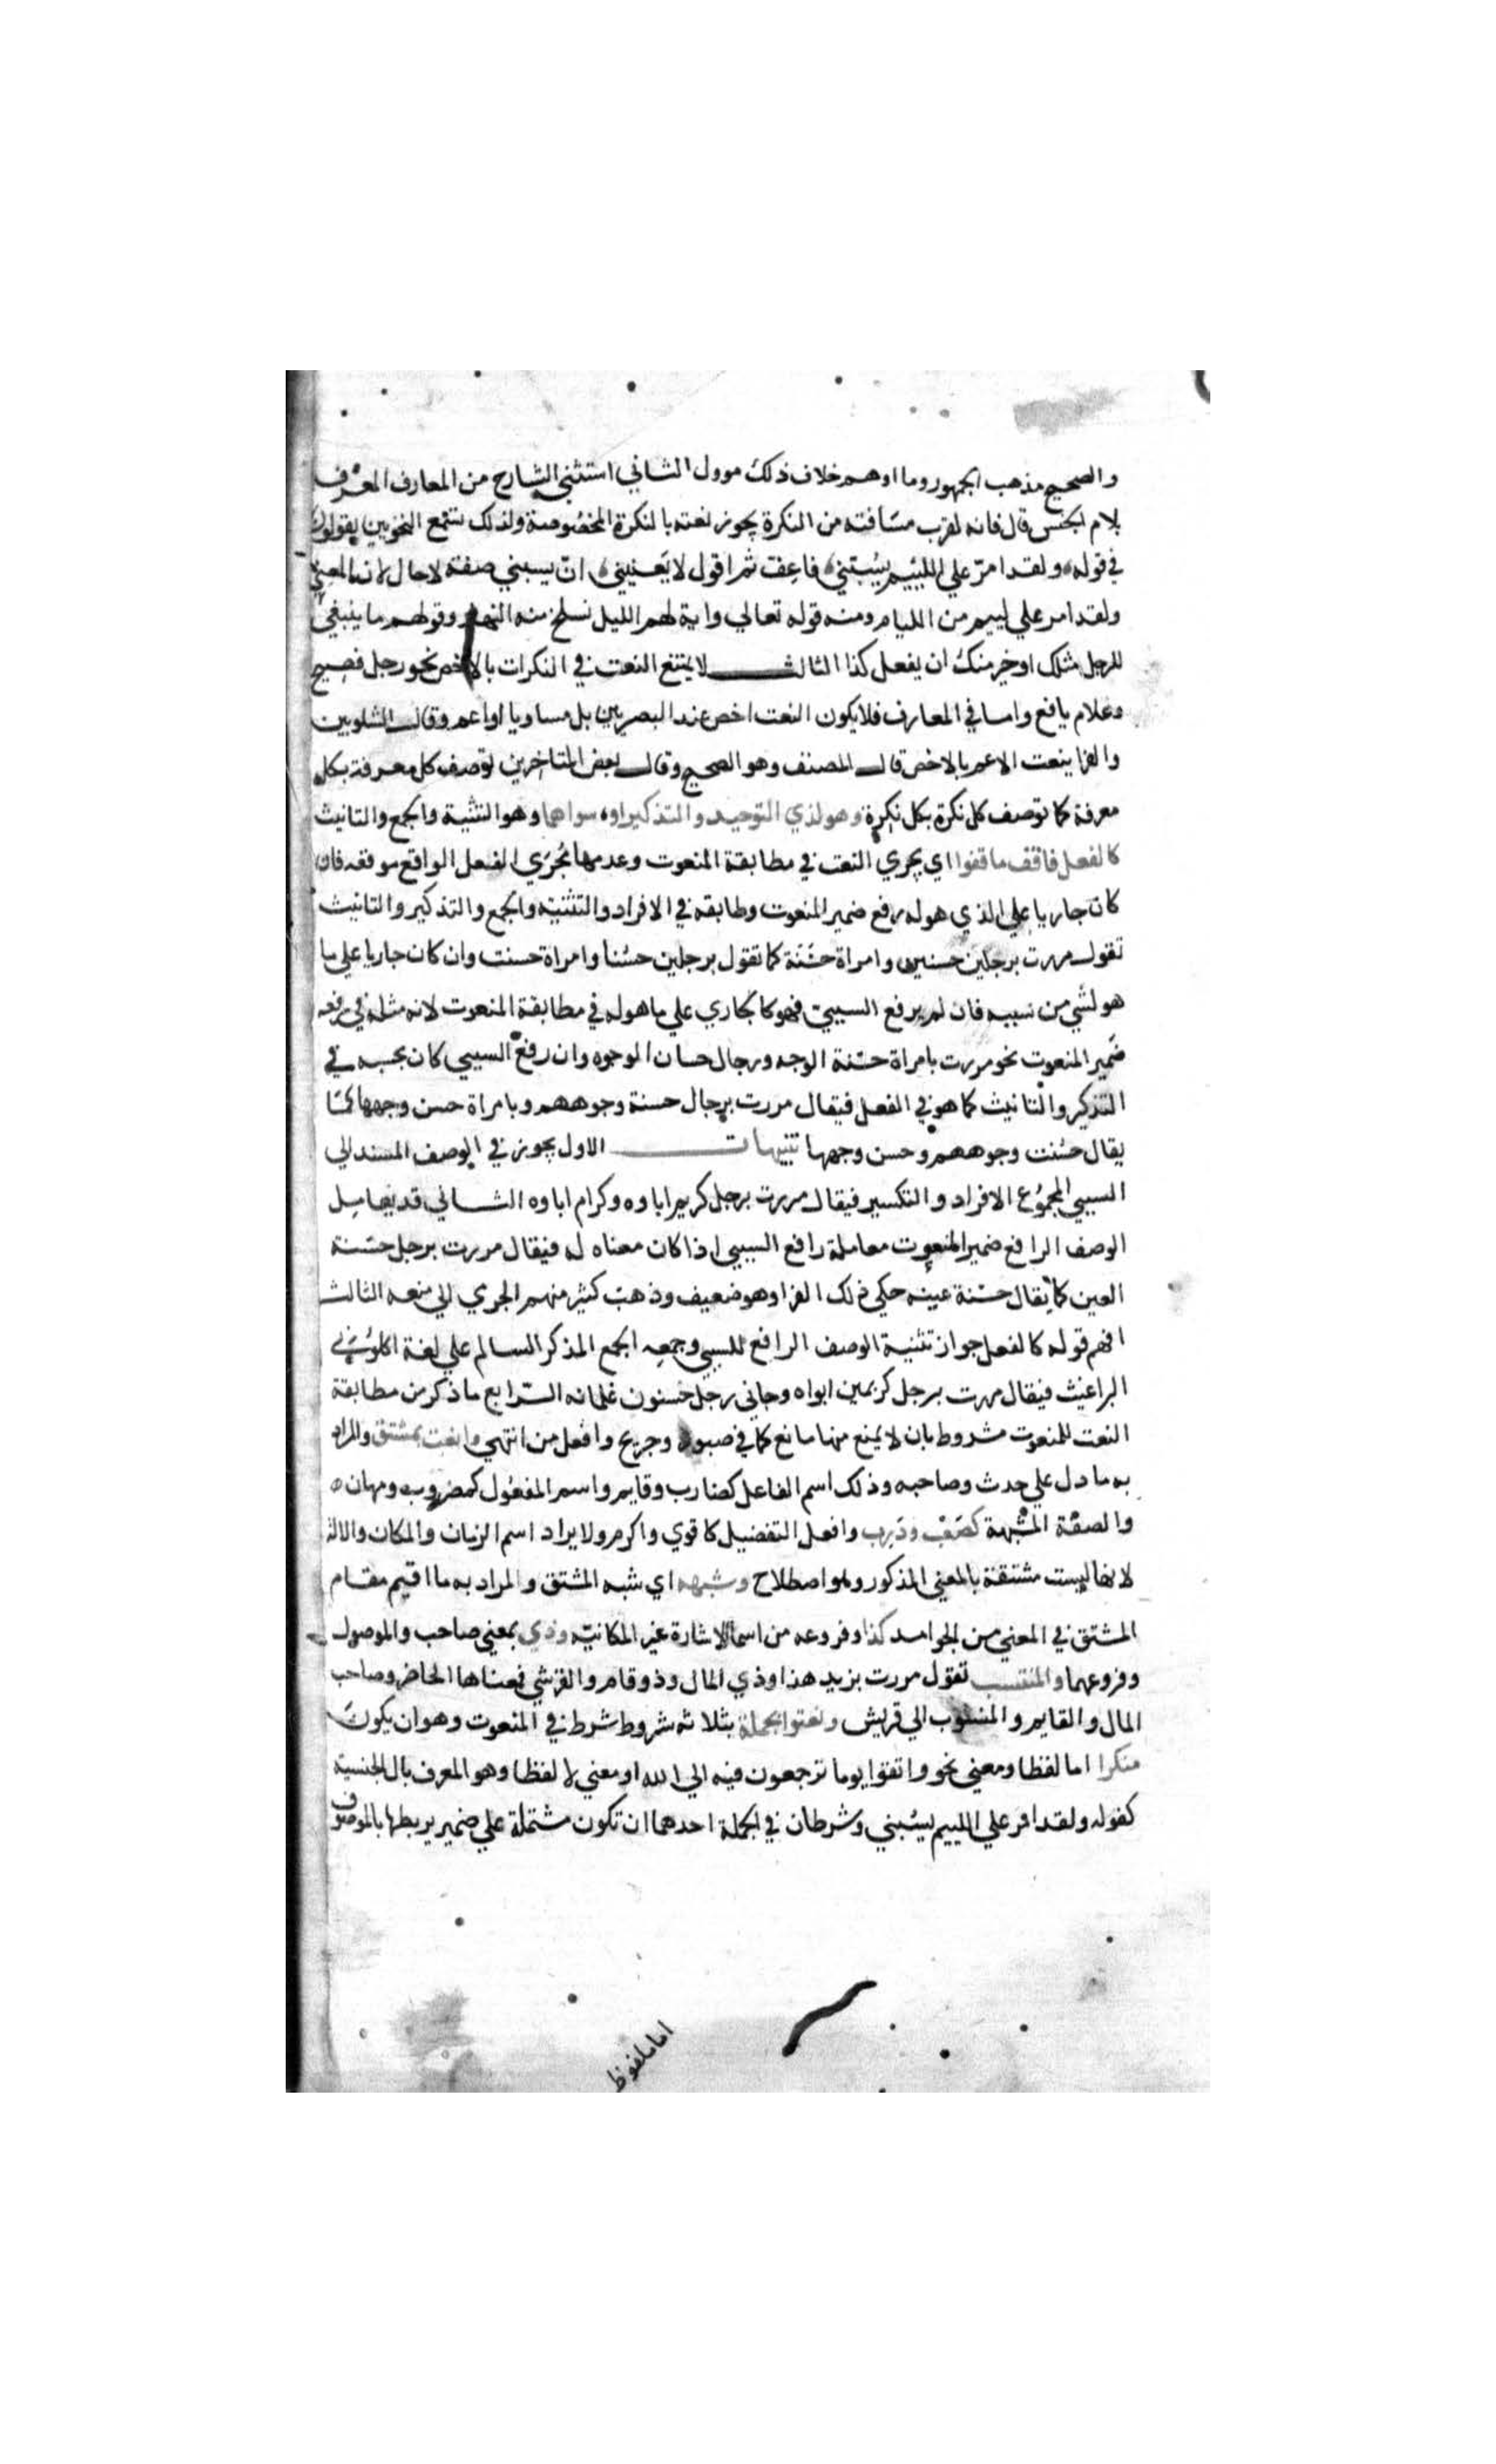 والصحيح مذهب الجمهور وما اوهم خلاف ذلك موول الثاني استثني الشارح من المعارف المعرف
بلام الجنس قال فانه لقرب مسافته من النكرة يجوز نعته بالنكرة المخصوصة ولذلك تسمع النحويين يقولون
في قوله ولقد امر علي اللييم يسبني فاعف ثم اقول لا يعنيني ان يسبني صفة لا حال لان المعني
ولقد امر علي لييم من الليام ومنه قوله تعالي واية لهم الليل نسلخ منه النهار وقولهم ما ينبغي
للرجل مثلك او خير منك ان يفعل كذا الثالث لا يمتنع النعت في النكرات بالاخص نحو رجل فصيح
وغلام يافع واما في المعارف فلا يكون النعت اخص عند البصريين بل مساويا او اعم وقال الشلوبين
والفرا ينعت الاعم بالاخص قال المصنف وهو الصحيح وقال بعض المتاخرين توصف كل معرفة بكل
معرفة كما توصف كل نكرة بكل نكرة وهو لذي التوحيد والتذكير او سواهما وهو التثنية والجمع والتانيث
كالفعل فاقف ما قفوا اي يجري النعت في مطابقة المنعوت وعدمها مجري الفعل الواقع موقعه فان
كان جاريا علي الذي هو له رفع ضمير المنعوت وطابقه في الافراد والتثنية والجمع والتذكير والتانيث
تقول مررت برجلين حسنين وامراة حسنة كما تقول برجلين حسنا وامراة حسنت وان كان جاريا علي ما
هو لشي من سببه فان لم يرفع السببي فهو كالجاري علي ما هو له في مطابقة المنعوت لانه مثله في رفعه
ضمير المنعوت نحو مررت بامراة حسنة الوجه ورجال حسان الوجوه وان رفع السببي كان بحسبه في
التذكير والتانيث كما هو في الفعل فيقال مررت برجال حسنة وجوههم وبامراة حسن وجهها كما
يقال حسنت وجوههم وحسن وجهها تنبيهات الاول يجوز في الوصف المسند الي
السببي المجموع الافراد والتكسير فيقال مررت برجل كريم اباوه وكرام اباوه الثاني قد يعامل
الوصف الرافع ضمير المنعوت معاملة رافع السببي اذا كان معناه له فيقال مررت برجل حسنة
العين كما يقال حسنة عينه حكي ذلك الفرا وهو ضعيف وذهب كثير منهم الجرمي الي منعه الثالث
افهم قوله كالفعل جواز تثنية الوصف الرافع للسببي وجمعه الجمع المذكر السالم علي لغة اكلوني
البراغيث فيقال مررت برجل كريمين ابواه وجاني رجل حسنون غلمانه الرابع ما ذكر من مطابقة
النعت للمنعوت مشروط بان لا يمنع منها مانع كما في صبور وجريح وافعل من انتهي وانعت بمشتق والمراد
به ما دل علي حدث وصاحبه وذلك اسم الفاعل كضارب وقايم واسم المفعول كمضروب ومهان
والصفة المشبهة كصعب وذرب وافعل التفضيل كاقوي واكرم ولا يراد اسم الزمان والمكان والالة
لانها ليست مشتقة بالمعني المذكور وهو اصطلاح وشبهه اي شبه المشتق والمراد به ما اقيم مقام
المشتق في المعني من الجوامد كذا وفروعه من اسما الاشارة غير المكانية وذي بمعني صاحب والموصول
وفروعهما والمنتسب تقول مررت بزيد هذا وذي المال وذو قام والقرشي فمعناها الحاضر وصاحب
المال والقايم والمنسوب الي قريش ونعتوا بجملة بثلاثة شروط شرط في المنعوت وهو ان يكون
منكرا اما لفظا ومعني نحو واتقوا يوما ترجعون فيه الي الله او معني لا لفظا وهو المعرف بال الجنسية
كقوله ولقد امر علي اللييم يسبني وشرطان في الجملة احدهما ان تكون مشتملة علي ضمير يربطها بالموصوف
اما ملفوظ